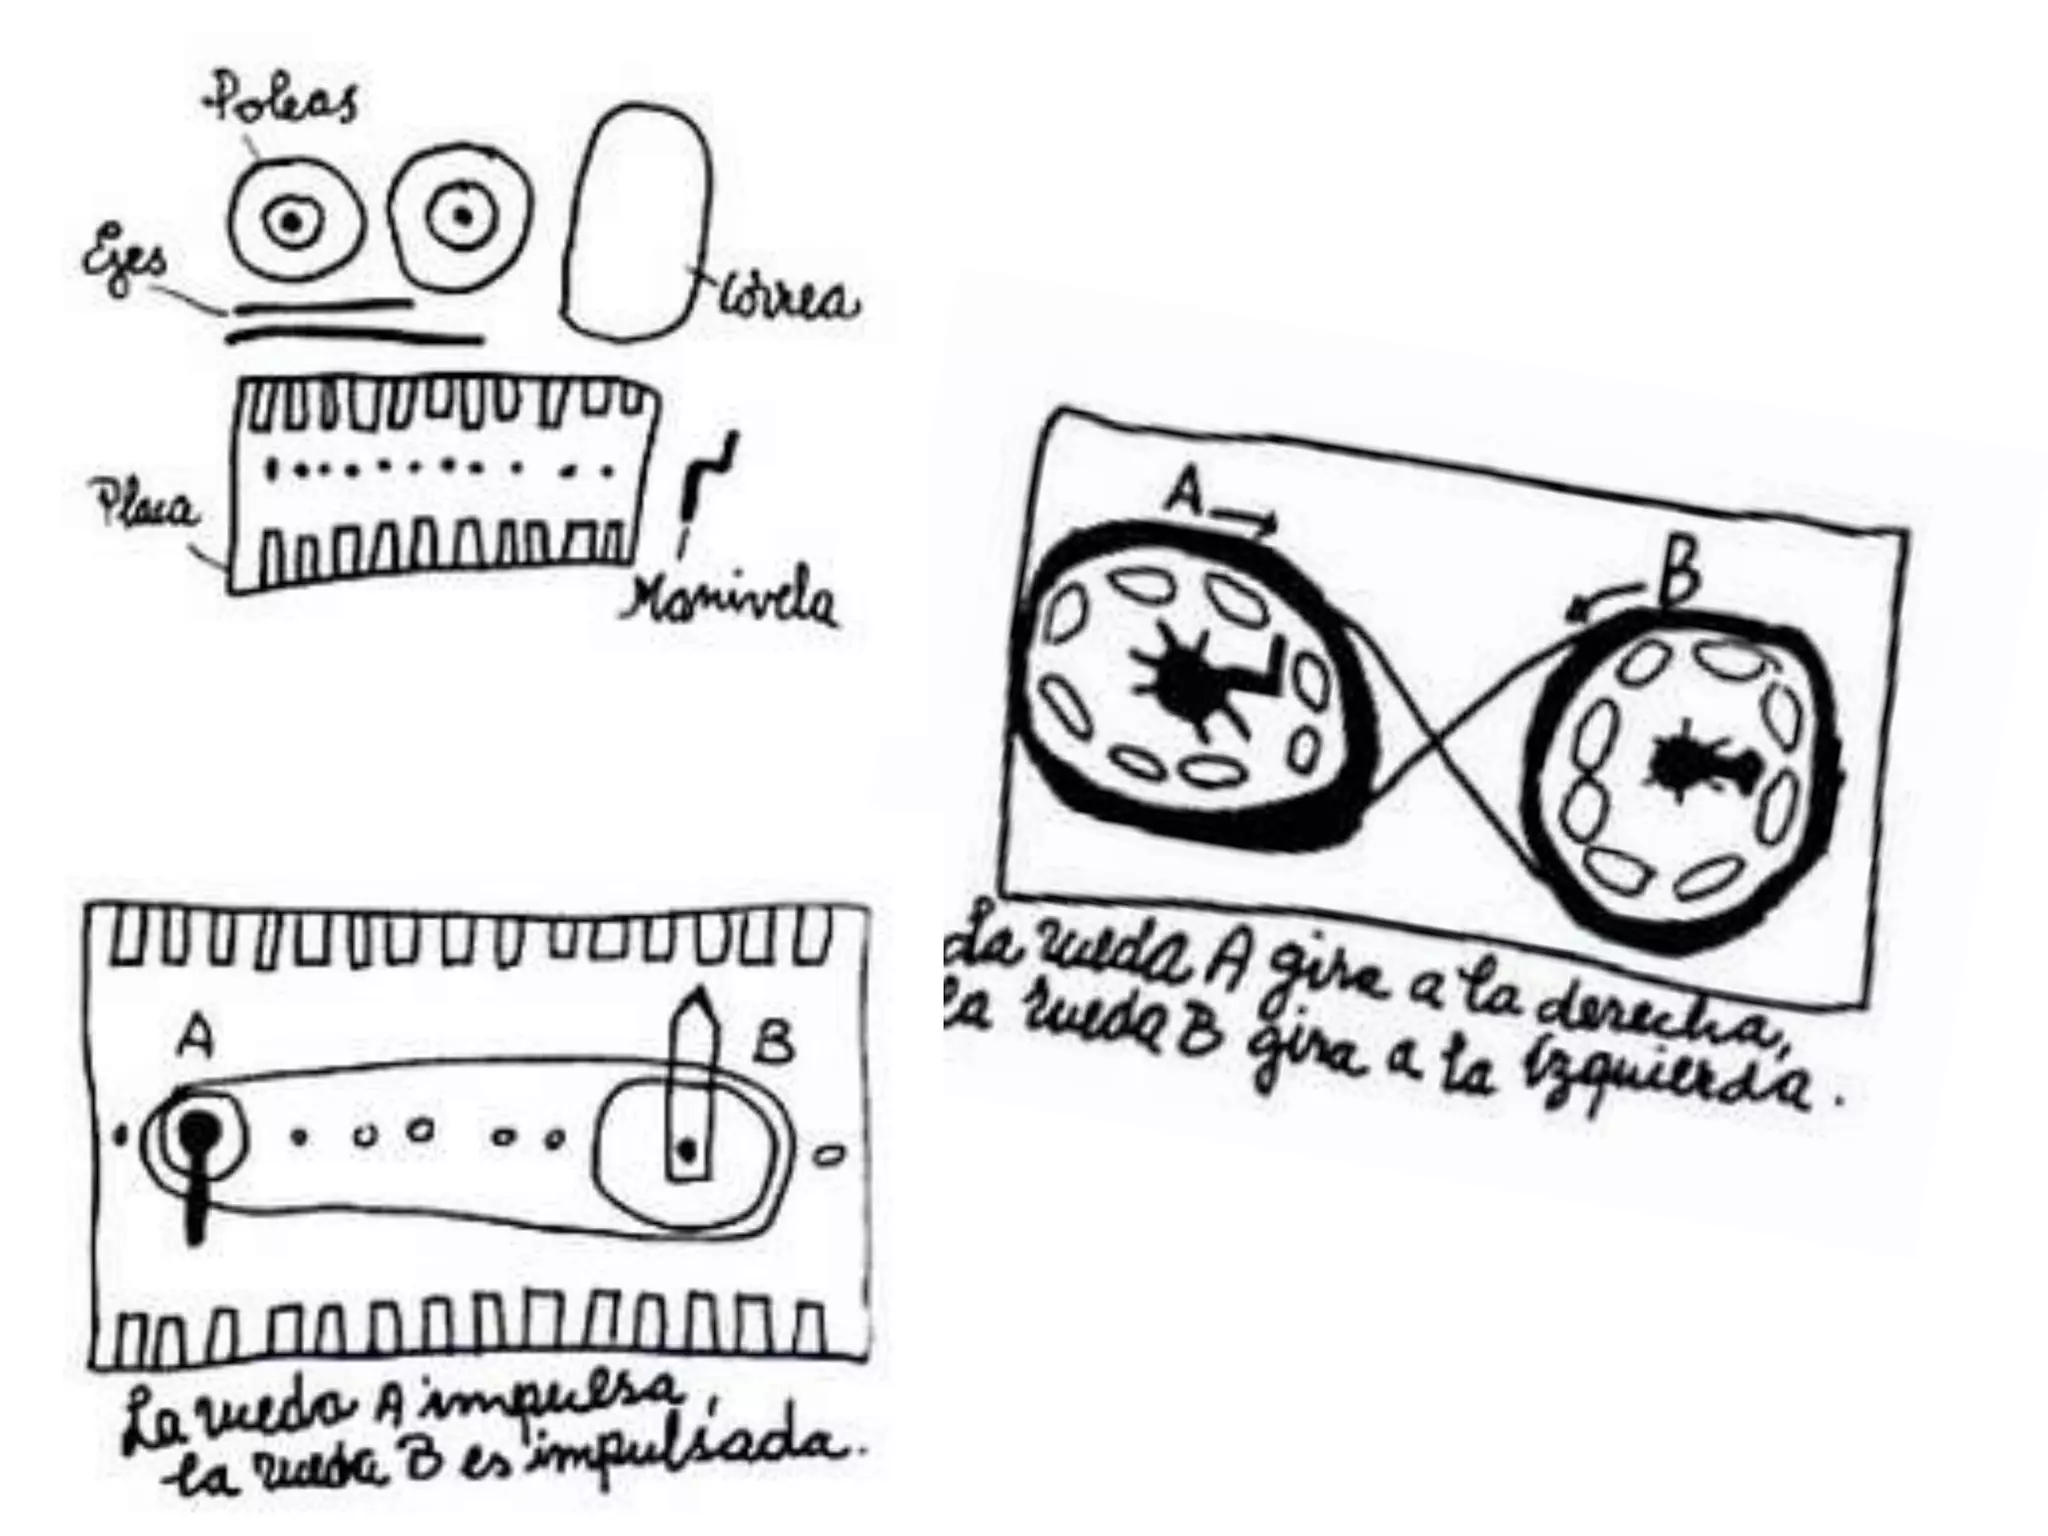 Poleas
Ejes
Correa
Placa
Manivela
A
B
La rueda A gira a la derecha,
la rueda B gira a la izquierda.
A
B
La rueda A impulsa,
la rueda B es impulsada.